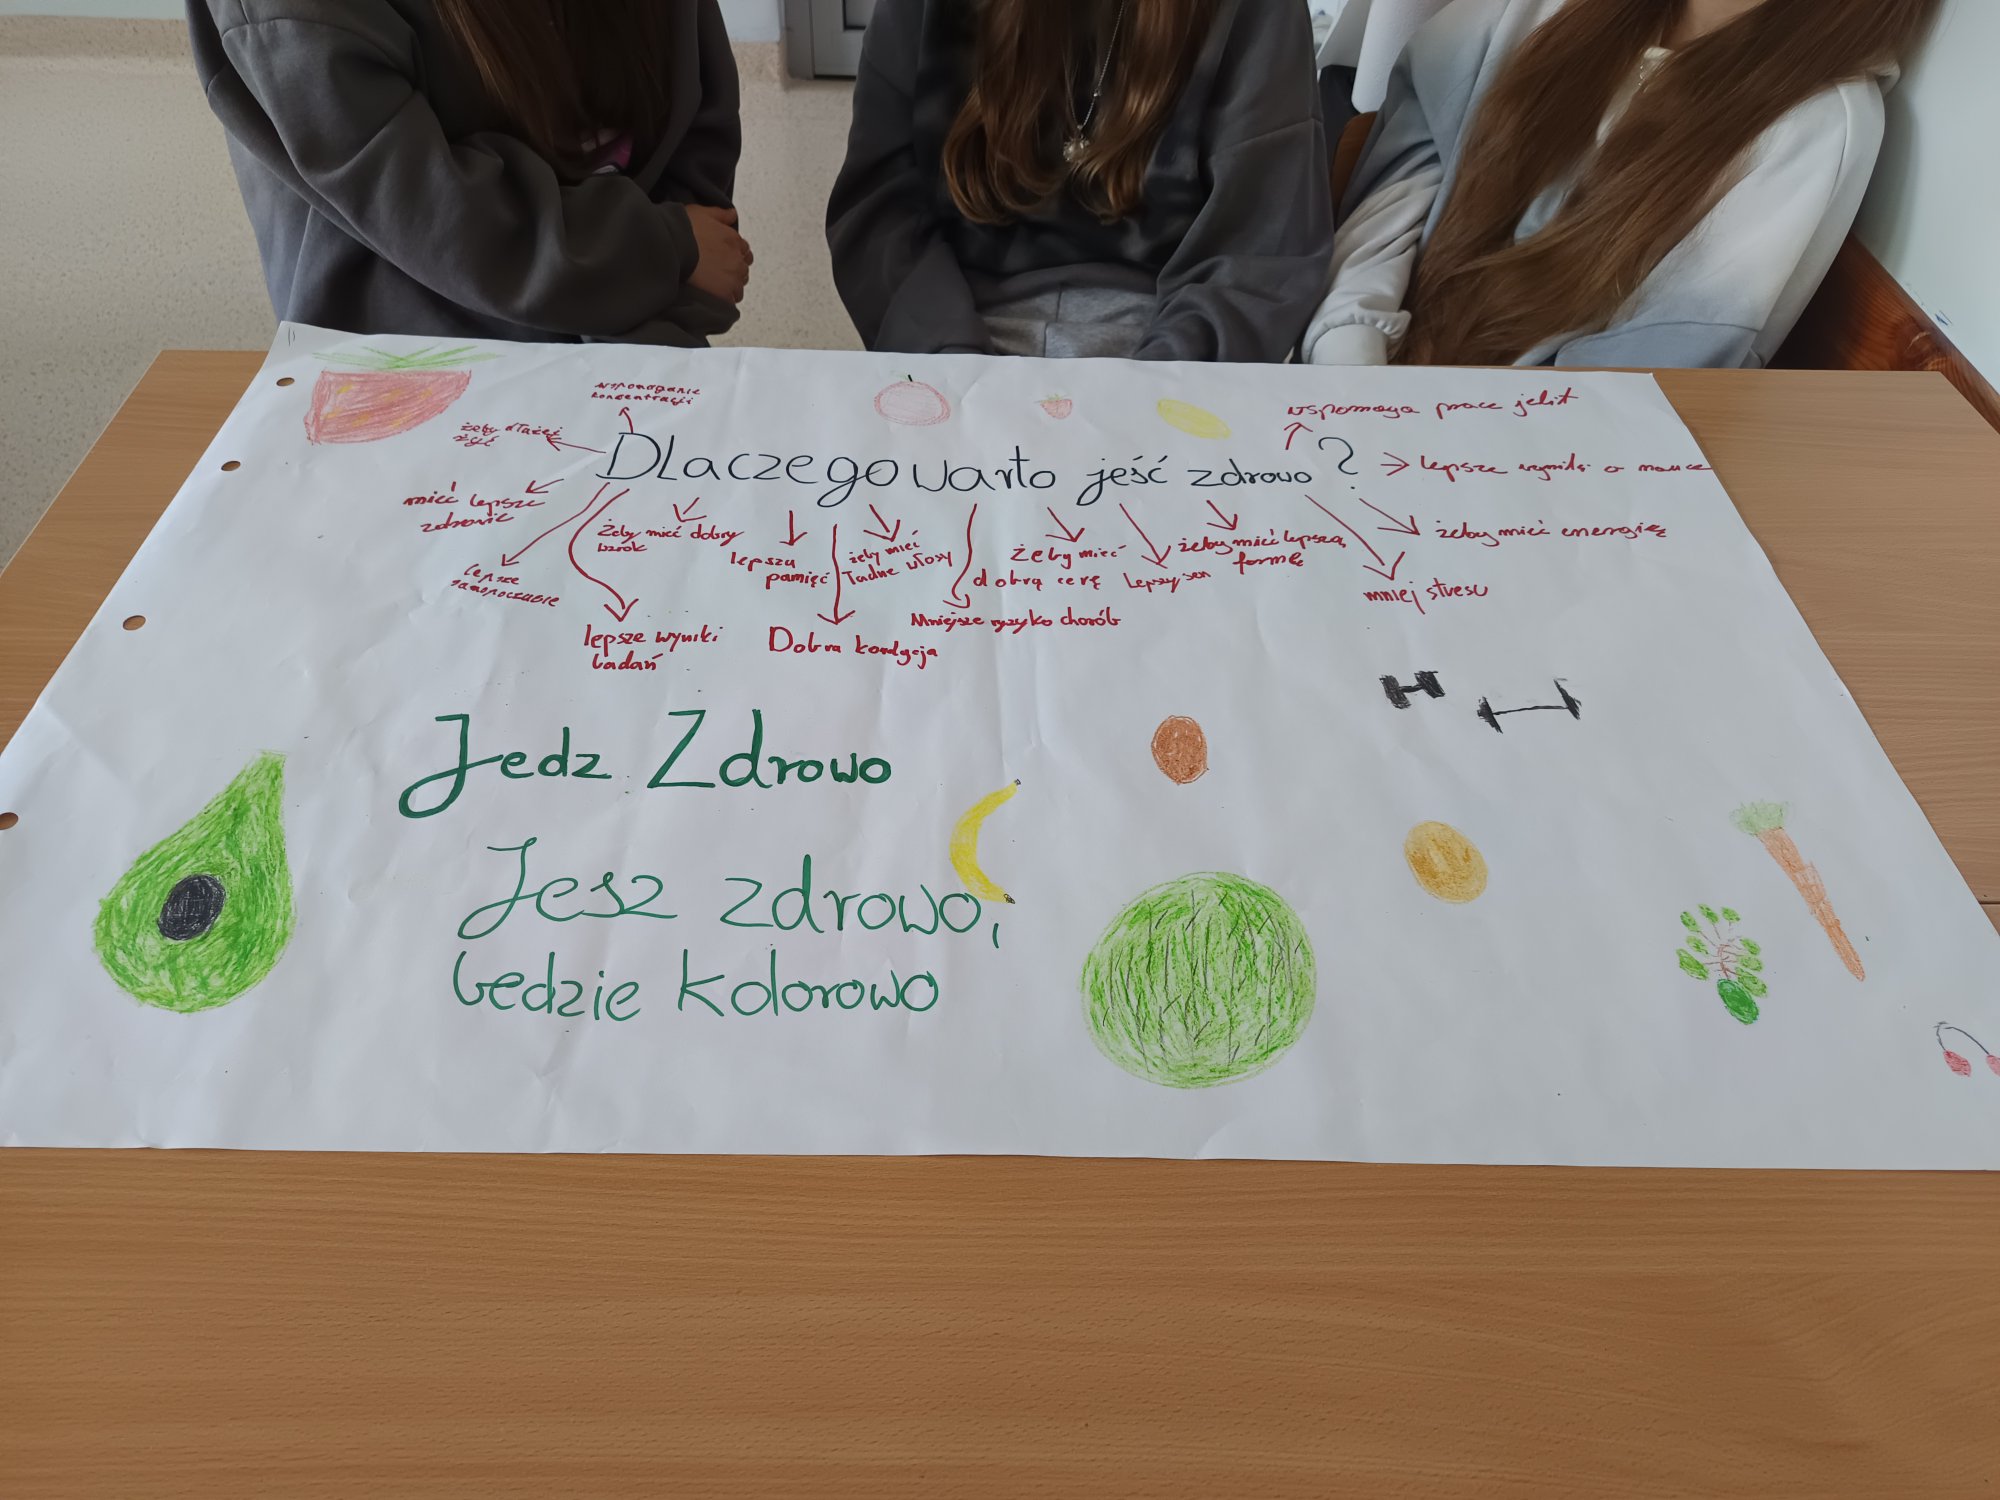 wspomaganie
koncentracji
żeby dłużej
żyć
Dlaczego warto jeść zdrowo?
wspomaga prace jelit
lepsze wyniki o nauce
mieć lepsze
zdrowie
lepsze
samopoczucie
Żeby mieć dobry
wzrok
lepsze wyniki
badań
lepsza
pamięć
Dobra kondycja
żeby mieć
ładne włosy
Mniejsze ryzyko chorób
żeby mieć
dobrą cerę
Lepszy sen
żeby mieć lepszą
formę
mniej stresu
żeby mieć energię
Jedz Zdrowo
Jesz zdrowo,
będzie kolorowo